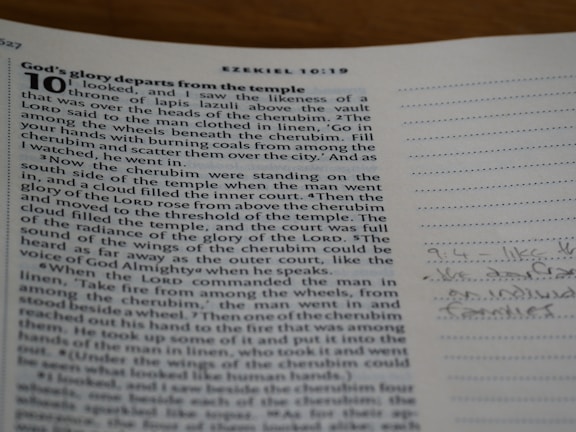 527
EZEKIEL 10:19
God's glory departs from the temple
10 ¹I looked, and I saw the likeness of a
throne of lapis lazuli above the vault
that was over the heads of the cherubim. ²The
LORD said to the man clothed in linen, 'Go in
among the wheels beneath the cherubim. Fill
your hands with burning coals from among the
cherubim and scatter them over the city.' And as
I watched, he went in.
³Now the cherubim were standing on the
south side of the temple when the man went
in, and a cloud filled the inner court. ⁴Then the
glory of the LORD rose from above the cherubim
and moved to the threshold of the temple. The
cloud filled the temple, and the court was full
of the radiance of the glory of the LORD. ⁵The
sound of the wings of the cherubim could be
heard as far away as the outer court, like the
voice of God Almightyᵃ when he speaks.
⁶When the LORD commanded the man in
linen, 'Take fire from among the wheels, from
among the cherubim,' the man went in and
stood beside a wheel. ⁷Then one of the cherubim
reached out his hand to the fire that was among
them. He took up some of it and put it into the
hands of the man in linen, who took it and went
out. ⁸(Under the wings of the cherubim could
be seen what looked like human hands.)
⁹I looked, and I saw beside the cherubim four
wheels, one beside each of the cherubim; the
wheels sparkled like topaz. ¹⁰As for their ap-
pearance, the four of them looked alike; each
was like
9:4 – like